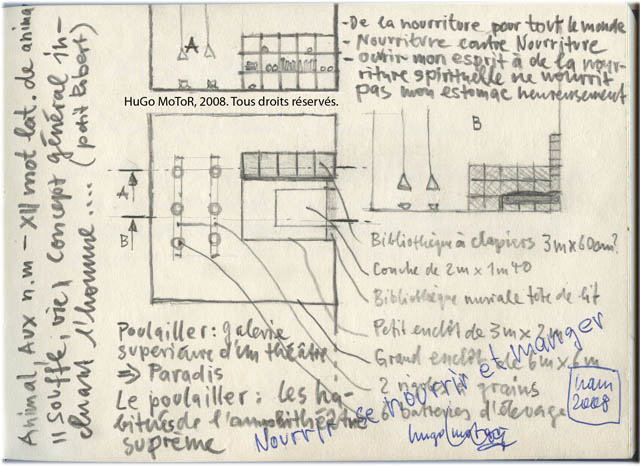 Animal, Aux n.m - XII mot lat. de anima
"Souffle, vie", concept général in-
cluant l'homme.... (petit Robert)
- De la nourriture pour tout le monde
- Nourriture contre Nourriture
- ouvrir mon esprit à de la nour-
riture spirituelle ne nourrit
pas mon estomac heureusement
A
HuGo MoToR, 2008. Tous droits réservés.
B
A
B
Bibliothèque à clapiers 3m x 60cm
Couche de 2m x 1m40
Bibliothèque murale tête de lit
Petit enclôt de 3m x 2m
Grand enclôt de 6m x 6m
2 à grains
6 batteries d'élevage
Poulailler: galerie
supérieure d'un théâtre
⇒ Paradis
Le poulailler: les ha-
bitués de l'amphithéâtre
suprème
Nourrir se nourrir et manger
hugo motor
nam
2008